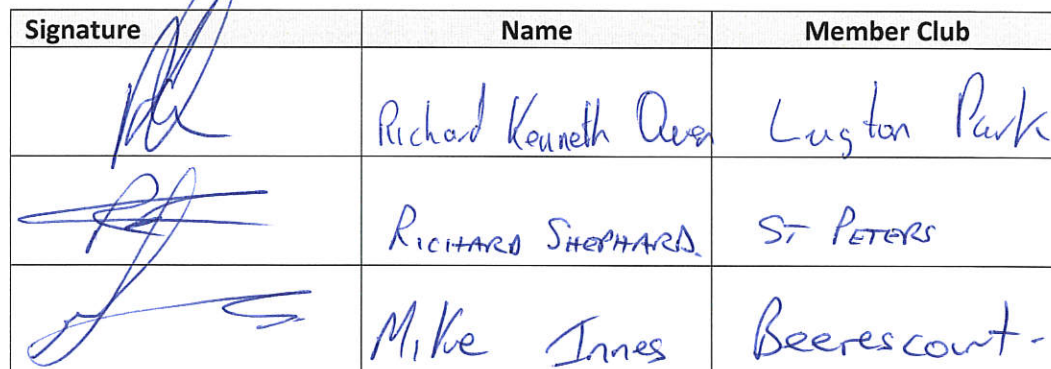 Signature Name Member Club
Richard Kenneth Owen Lugton Park
RICHARD SHEPHARD. ST PETERS
Mike Innes Beerescourt-